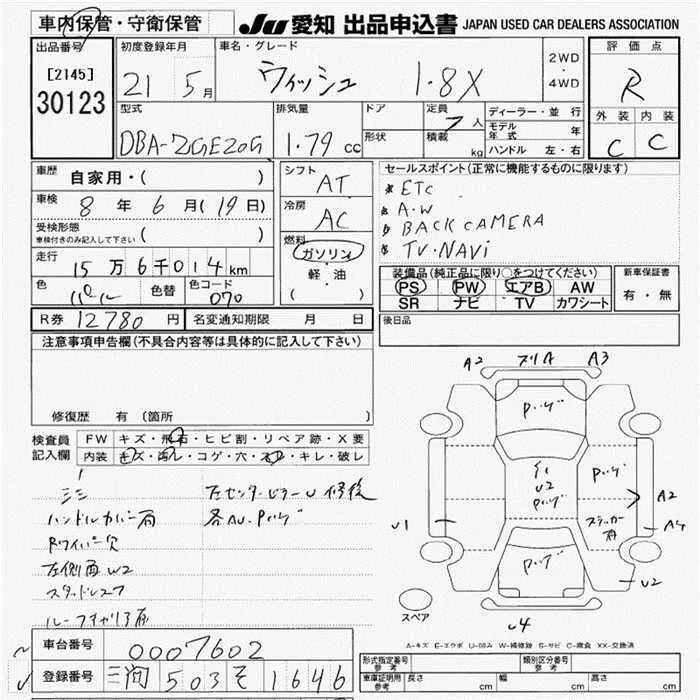 車内保管・守衛保管
JU 愛知 出品申込書 JAPAN USED CAR DEALERS ASSOCIATION
出品番号
[2145]
30123
初度登録年月
21 5月
車名・グレード
ウィッシュ 1.8X
2WD
・
4WD
評価点
R
外装 内装
C C
型式
DBA-ZGE20G
排気量
1.79 cc
ドア
形状
定員 7人
積載 kg
ディーラー・並行
モデル年式 年
ハンドル 左・右
車歴 自家用・( )
車検 8年 6月(19日)
受検形態
車検付きのみ記入して下さい ( )
走行 15万6千014km
色 パール 色替 色コード 070
シフト AT
冷房 AC
燃料
ガソリン
軽・油
( )
セールスポイント(正常に機能するものに限ります)
ETC
A.W
BACK CAMERA
TV.NAVi
装備品(純正品に限り○をつけてください)
PS PW エアB AW
SR ナビ TV カワシート
新車保証書
有・無
R券 12780円 名変通知期限 月 日
後日品
注意事項申告欄(不具合内容等は具体的に記入して下さい)
修復歴 有(箇所 )
検査員記入欄
FW キズ・飛石・ヒビ割・リペア跡・X要
内装 キズ・汚レ・コゲ・穴・スレ・キレ・破レ
左センターピラーU 修後
ハンドルカバー有
各AU.Pハゲ
Rワイパー欠
左側面W2
スタッドレス
A2 A3
Pハゲ
U2
Pハゲ
Pハゲ
A2
U1
ステッカー有
A4
Pハゲ
U2
スペア
U4
A-キズ E-エクボ U-凹み W-補修跡 S-サビ C-腐食 XX-交換済
車台番号 0007602
登録番号 503 そ 1646
形式指定番号 参考
類別区分番号 参考
車庫証明用 参考 長さ cm 幅 cm 高さ cm